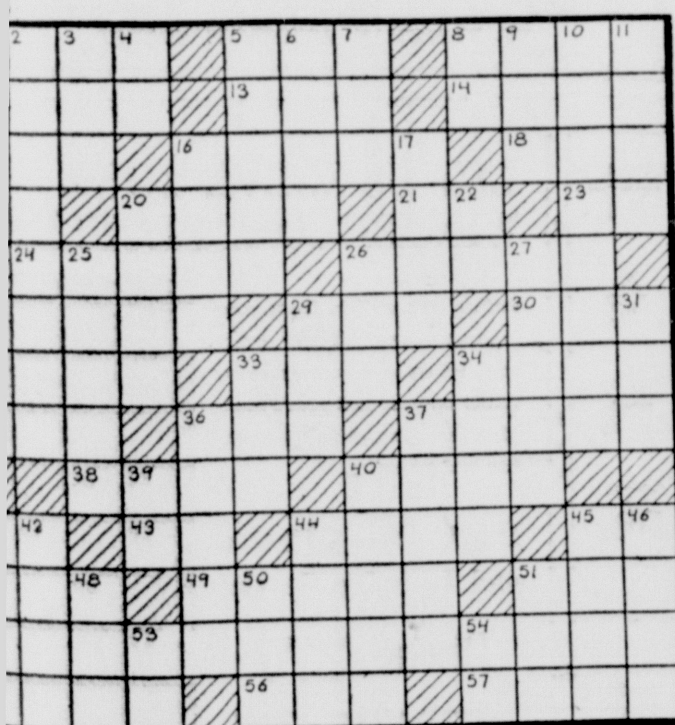 2 3 4 5 6 7 8 9 10 11
13 14
16 17 18
20 21 22 23
24 25 26 27
29 30 31
33 34
36 37
38 39 40
42 43 44 45 46
48 49 50 51
53 54
56 57